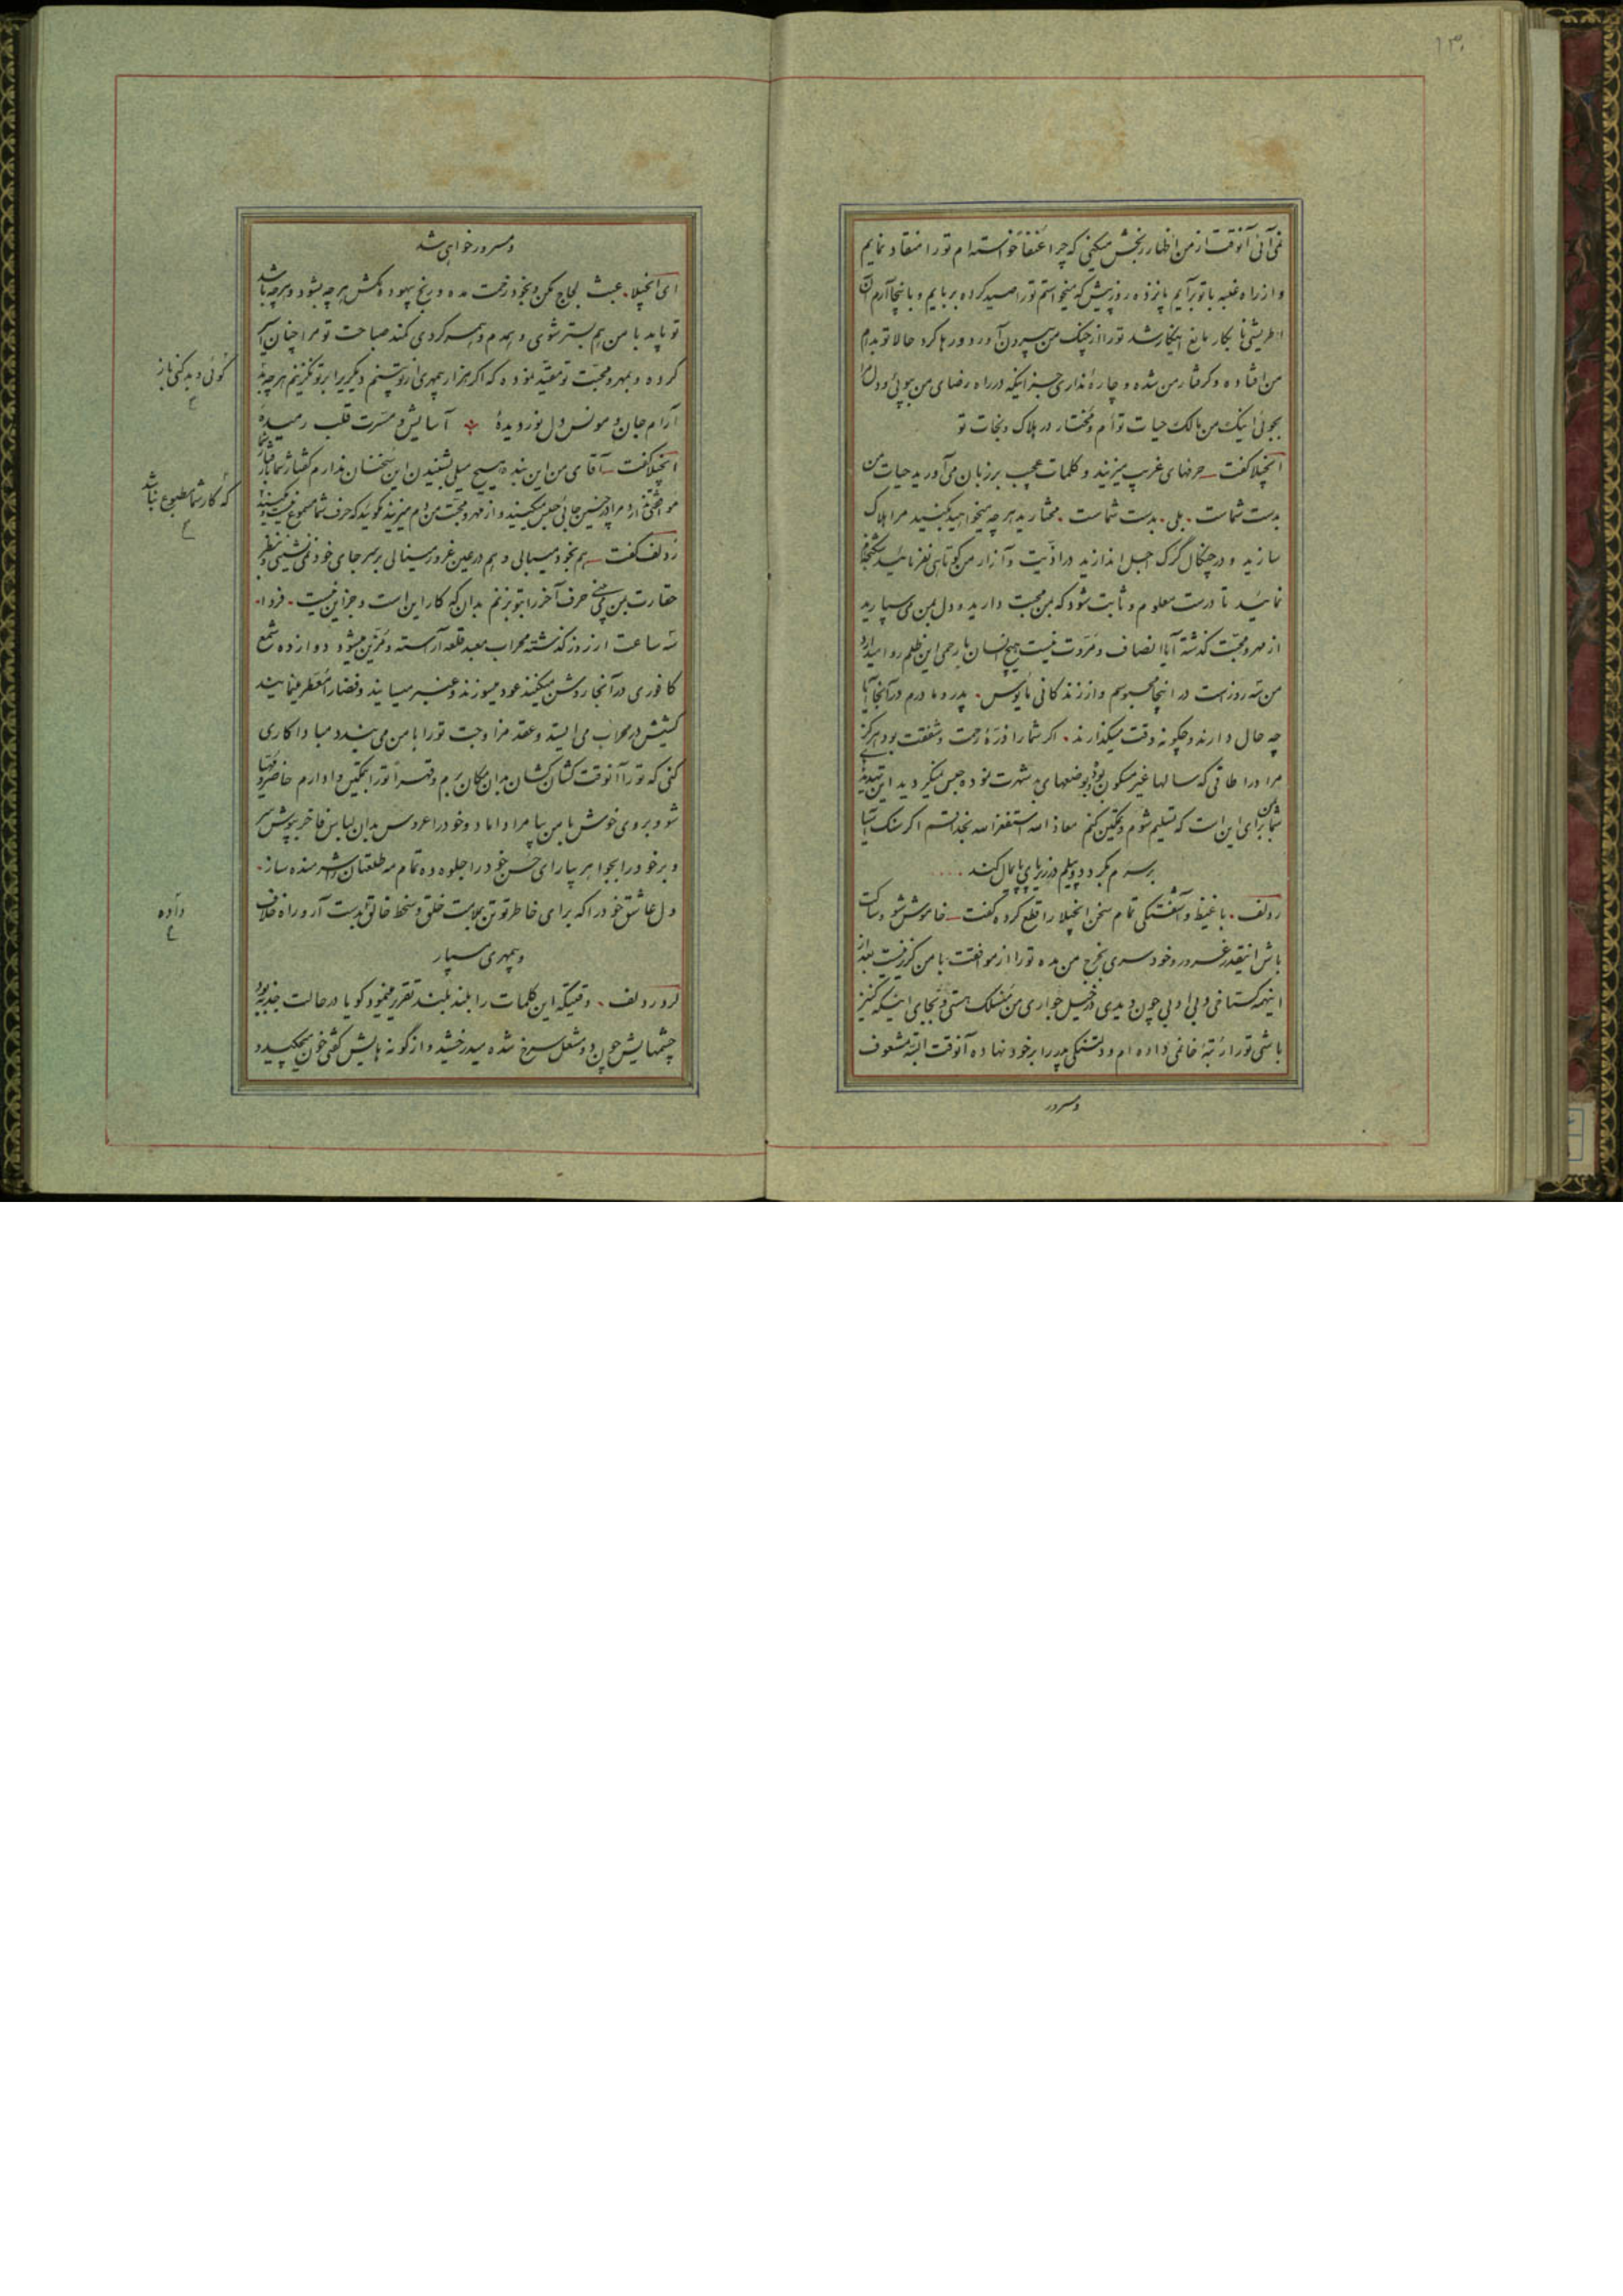 ۱۳۰
نمی‌آئی آنوقت از من اظهار رنجش میکنی که چرا عُنفاً خواسته‌ام تو را منقاد نمایم
و از راه غلبه با تو برآیم پانزده روز پیش که میخواستم تو را صید کرده بربایم و باینجا آرم آن
اطریشی نابکار مانع اینکار شد تو را از چنک من بیرون آورد و رها کرد حالا تو بدام
من افتاده و گرفتار من شده و چارهٔ نداری جز اینکه در راه رضای من بپوئی و دل مرا
بجوئی اینک من مالک حیات توأم و مختار در هلاک و نجات تو
آنجیلا گفت حرفهای غریب میزنید و کلمات عجیب بر زبان می‌آورید حیات من
بدست شماست . بلی . بدست شماست . مختارید هر چه میخواهید بکنید مرا هلاک
سازید و در چنکال گرک اجل اندازید در اذیت و آزار من کوتاهی نفرمائید
نمائید تا درست معلوم و ثابت شود که بمن محبت دارید و دل بمن می سپارید
از مهر و محبّت گذشته آیا انصاف و مروّت نیست هیچ انسان با رحمی این ظلم روا میدارد
من سه روز است در اینجا محبوسم و از زندگانی مأیوس . پدر و مادرم در آنجا آیا
چه حال دارند و چگونه وقت میگذارند . اگر شما را ذرهٔ رحمت و شفقت بود هرگز
مرا در اطاقی که سالها غیر مسکون بوده و بوضعهای بد شهرت نموده حبس نمیکردید این تهدید
شما برای این است که من تسلیم شوم و تمکین کنم معاذ الله استغفر الله بخدا قسم اگر سنک آسیا
بر سرم بگردد و پیلم در زیر پای پایمال کند ....
ردلف . با غیظ و آشفتگی تمام سخن آنجیلا را قطع کرده گفت خاموش شو و ساکت
باش اینقدر غرور و خودسری بخرج من مده تو را از موافقت با من گزیر نیست بعد از
اینهمه گستاخی و بی ادبی چون و بدی در خیل جواری من منسلک هستی و بجای اینکه کنیز
باشی تو را رتبهٔ خانمی داده‌ام و دلتنگی پدر را بر خود نهاده آنوقت البته مشعوف
و مسرور
و مسرور خواهی شد
ای آنجیلا . عبث لجاج مکن و بخود زحمت مده و رنج بیهوده مکش هر چه بشود و هر چه باشد
تو باید با من هم بستر شوی و همدم و همسر گردی کمند صباحت تو مرا چنان اسیر
کرده و بمهر و محبّت تو مقیّد نموده که اگر هزار بیمهری از تو بینم دیگریرا بر تو نگزینم هر چه بد
آرام جان و مونس دل نور دیدهٔ آسایش و مسرّت قلب رمیدهٔ
آنجیلا گفت آقای من این بنده هیچ میل بشنیدن این سخنان ندارم گفتار شما با رفتار شما
موافقتی ندارد مرا در چنین جائی حبس میکنید و از مهر و محبّت من دم میزنید گوئید که حرف شما مسموع نیست
ردلف گفت هم بخود میبالی و هم در عین غرور مینالی بر سر جای خود نمی‌نشینی و بنظر
حقارت بمن می‌بینی حرف آخر را بتو بزنم بدان که کار این است و جز این نیست . فردا .
سه ساعت از روز گذشته محراب معبد قلعه آراسته و مزیّن میشود دوازده شمع
کافوری در آنجا روشن میکنند عود میسوزند و عنبر میسایند و فضا را معطر مینمایند
کشیش در محراب می‌ایستد و عقد مزاوجت تو را با من می‌بندد مبادا کاری
کنی که تو را آنوقت کشان کشان بدان مکان برم و قهراً تو را بتمکین وادارم حاضر و مهیّا
شو و بروی خوش با من بیا مرا داماد و خود را عروس بدان لباس فاخر بپوش سر
و بر خود را بجواهر بیارای حُسن خود را جلوه ده تمام مه طلعتان را شرمنده ساز .
دل عاشق خود را که برای خاطر تو تن بملامت خلق و سخط خالق بدست آر و راه خلاف
و بیمهری مسپار
لرد ردلف . وقتیکه این کلمات را بلند بلند تقریر مینمود گویا در حالت جذبه بود
چشمهایش چون دو مشعل سرخ شده میدرخشید و از گونه‌هایش گفتی خون میچکید و
گوئی و بد کنی باز
که کار شما مطبوع نباشد
داده